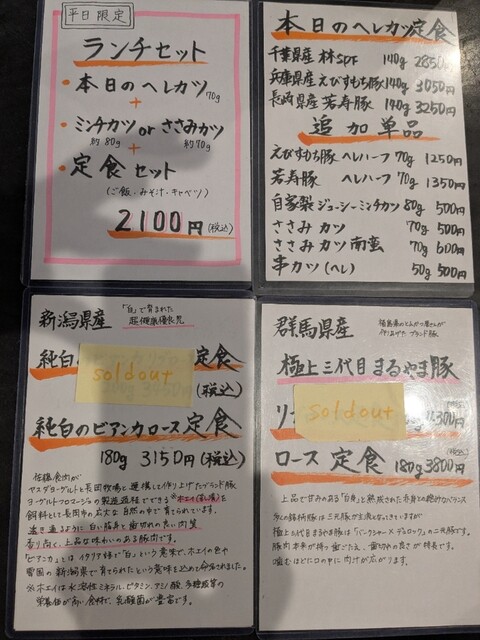 平日限定
ランチセット
・本日のヘレカツ 70g
+
・ミンチカツ or ささみカツ
約80g 約70g
+
・定食セット
(ご飯・みそ汁・キャベツ)
2100円(税込)
本日のヘレカツ定食
千葉県産 林SPF 140g 2850
兵庫県産えびすもち豚 140g 3050円
長崎県産 若寿豚 140g 3250円
追加単品
えびすもち豚 ヘレハーフ 70g 1250円
若寿豚 ヘレハーフ 70g 1350円
自家製ジューシーミンチカツ 80g 500円
ささみカツ 70g 500円
ささみカツ南蛮 70g 600円
串カツ(ヘレ) 50g 500円
新潟県産 「白」で育まれた
超健康優良児
純白の
定食
soldout
(税込)
純白のビアンカロース定食
180g 3150円(税込)
佐藤食肉が
ヤスダヨーグルトと長田牧場と連携して作り上げたブランド豚
ヨーグルトフロマージュの製造過程でできる※ホエイ(乳清)を
飼料として長岡市の広大な自然の中で育てられています。
透き通るように白い脂身と歯切れの良い肉質
香り高く、上品な味わいのある豚肉です。
「ビアンカ」とは、イタリア語で「白」という意味で、ホエイの色や
雪国の新潟県で育てられたという意味を込めて命名されました。
※ホエイは水溶性ミネラル・ビタミン・アミノ酸・多糖類等の
栄養価が高い食材で、乳酸菌が豊富です。
群馬県産
極上三代目まるやま豚
soldout
300円
ロース定食 180g 3800円
(税込)
上品で甘みのある「白身」と熟成された赤身との絶妙なバランス
多くの銘柄豚は三元豚が主流となっていますが
極上三代目まるやま豚は「バークシャー×デュロック」の二元豚です。
豚肉本来が持つ歯ごたえ、歯切れの良さが特長です。
噛むほどに口の中に肉汁が広がります。